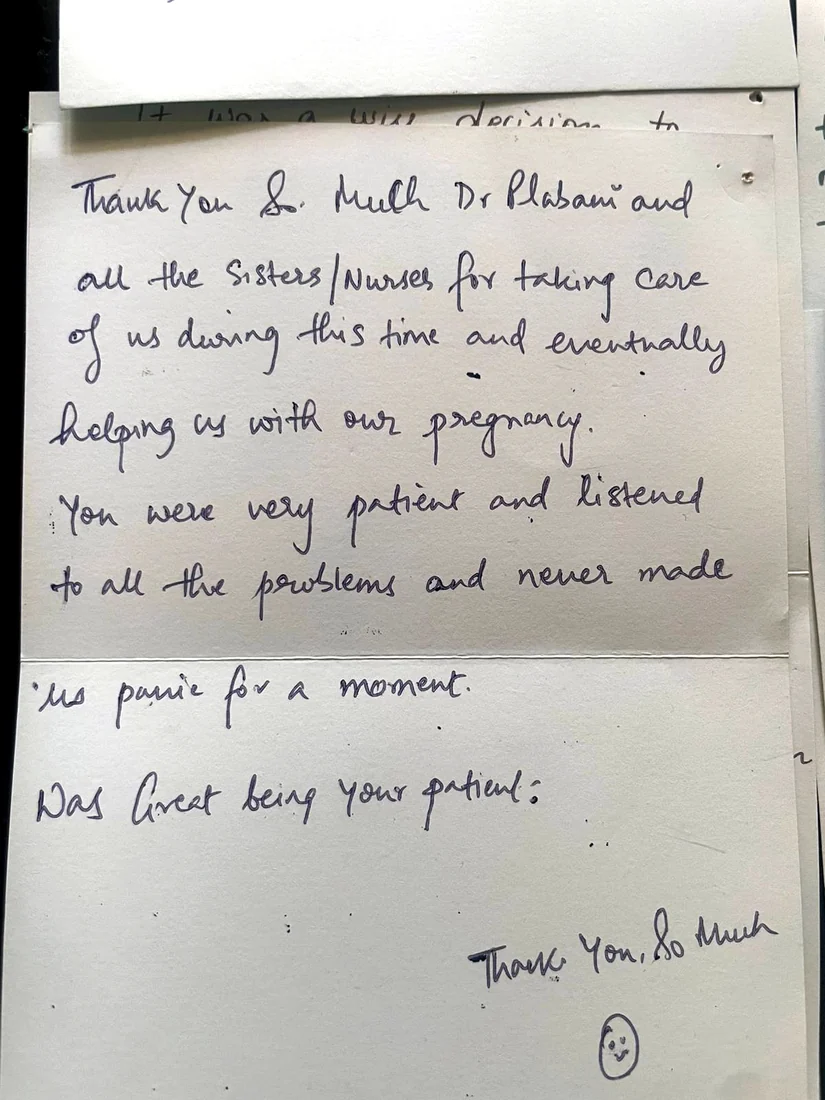 It was a wise decision to
Thank You So Much Dr Plabani and
all the Sisters/Nurses for taking care
of us during this time and eventually
helping us with our pregnancy.
You were very patient and listened
to all the problems and never made
us panic for a moment.
Was Great being your patient:
Thank You, So Much